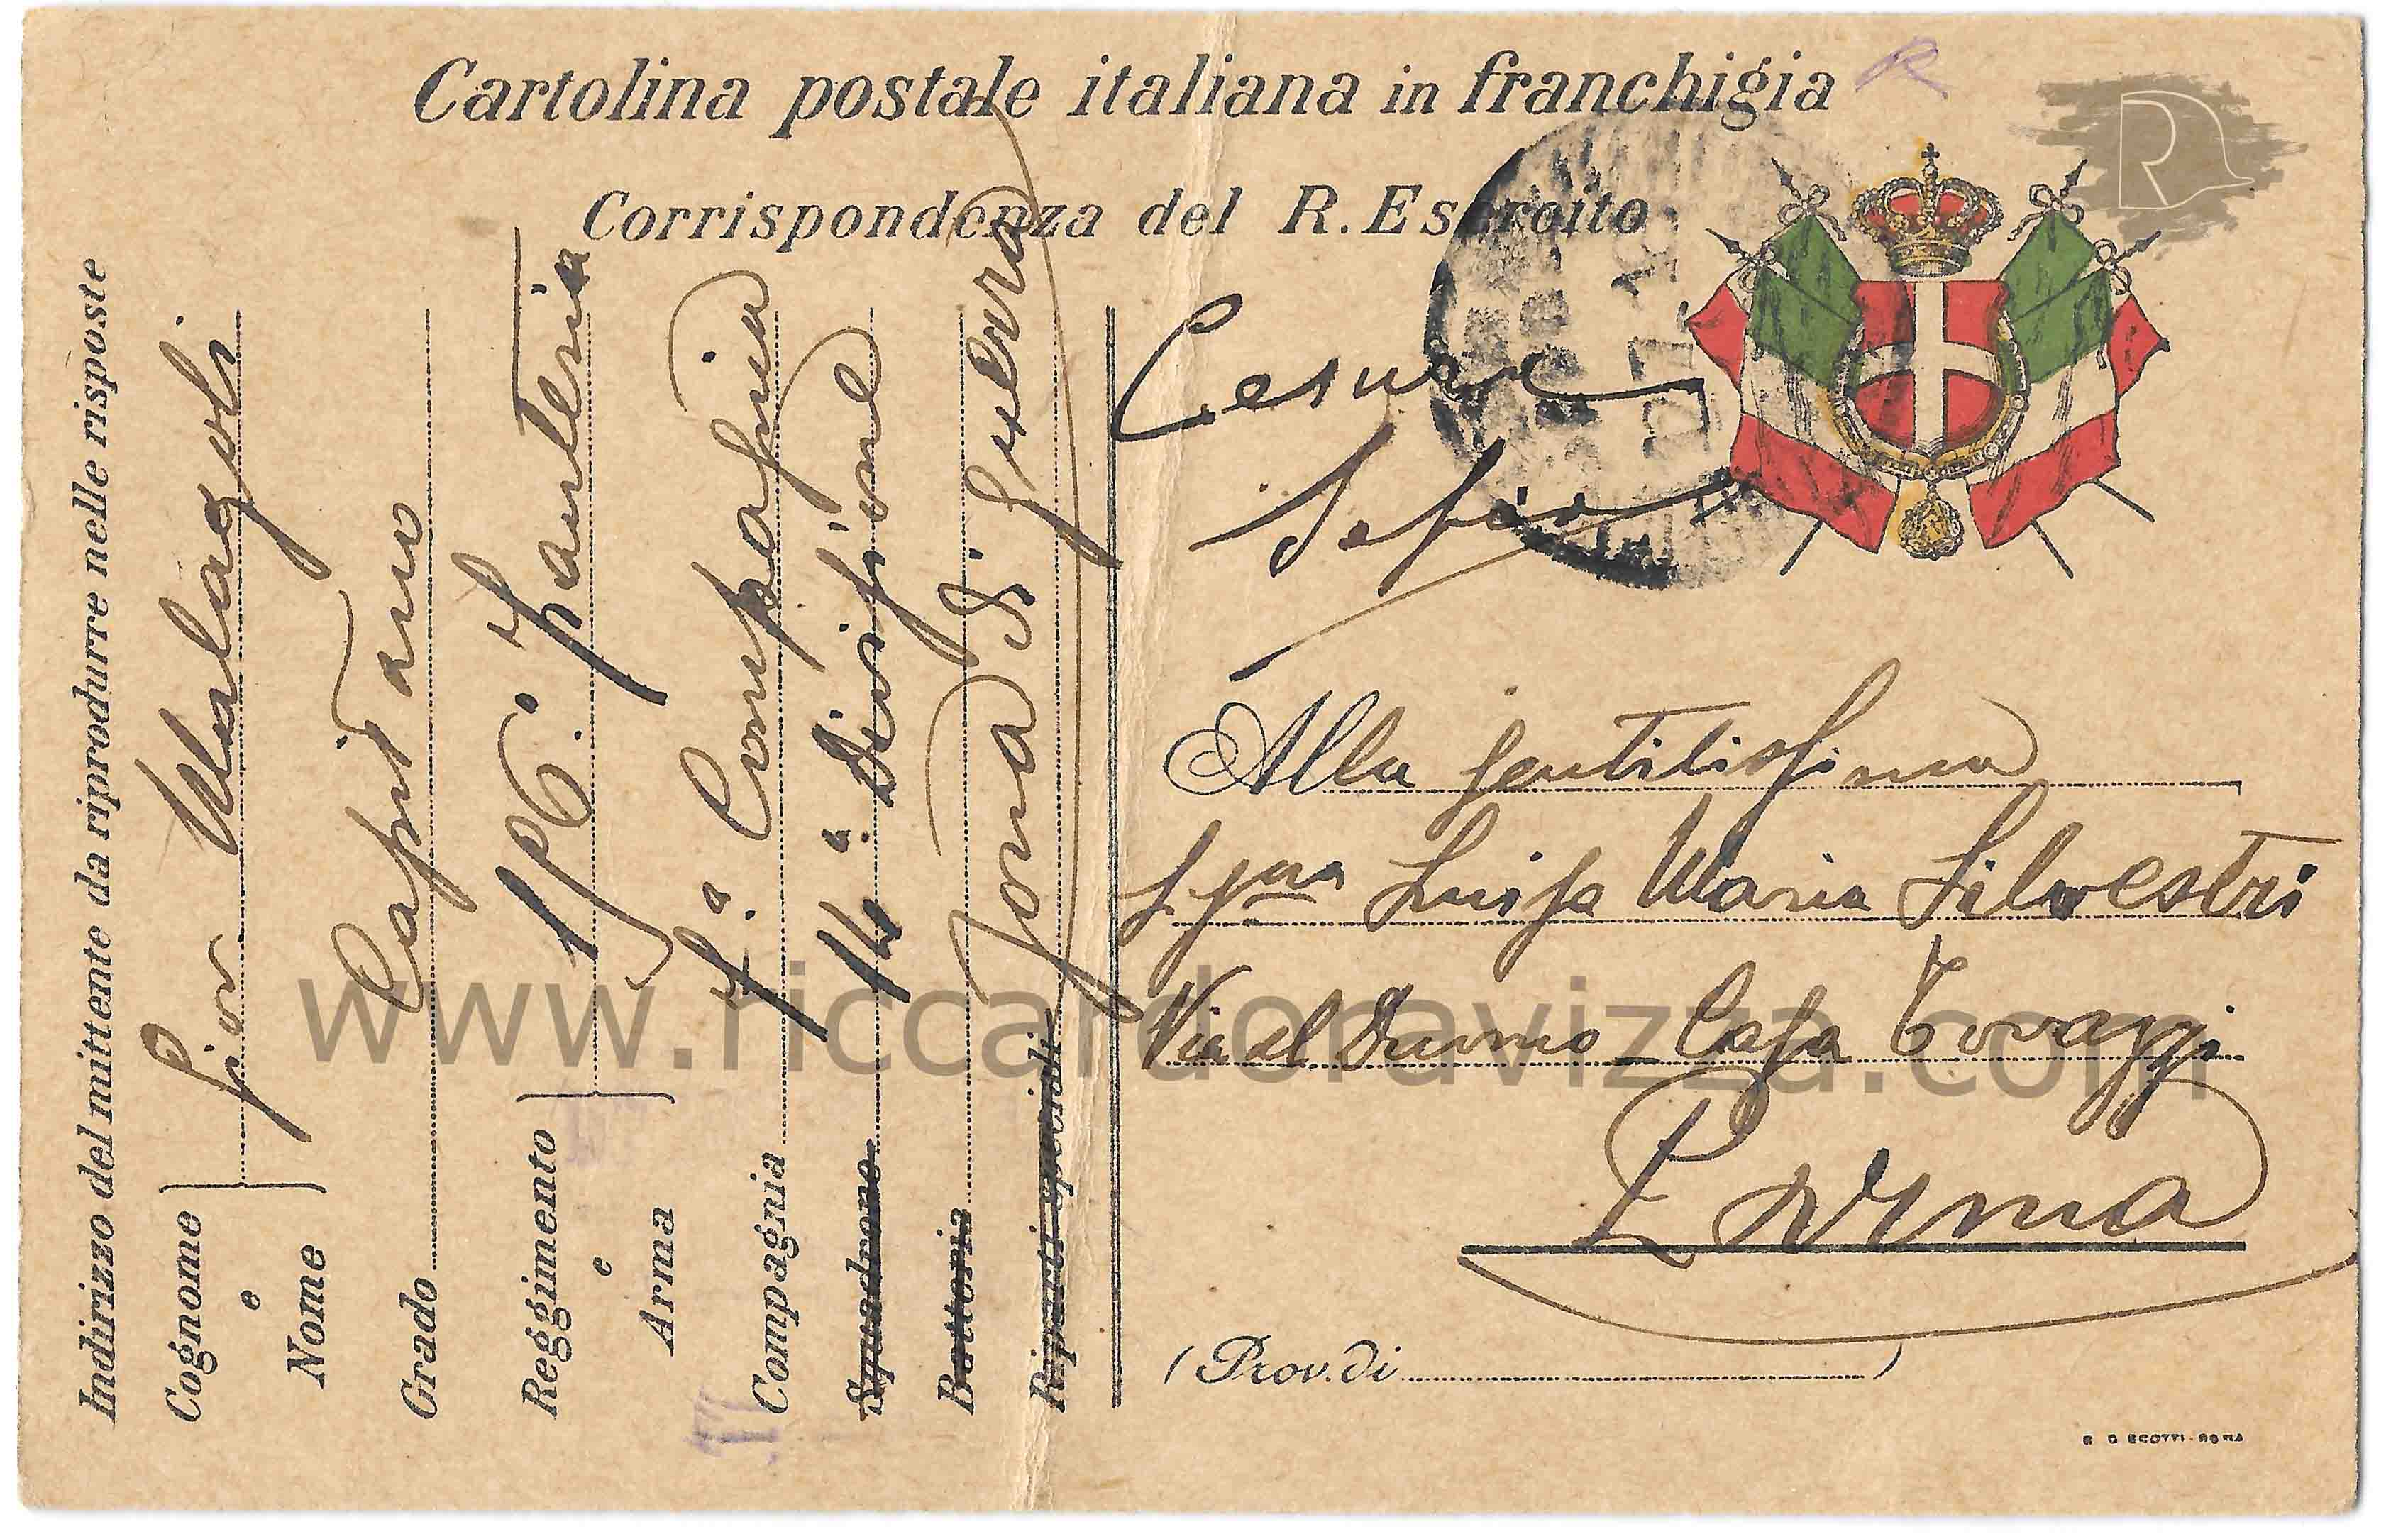 Cartolina postale italiana in franchigia
R
Corrispondenza del R. Esercito
Indirizzo del mittente da riprodurre nelle risposte
Cognome e Nome
Gior Malagoli
Grado
Capitano
Reggimento e Arma
Fanteria
Compagnia
7.a Compagnia
Squadrone
14.a Divisione
Batteria
Zona di guerra
Riparti speciali
Alla gentilissima
Luisa Maria Silvestri
Via al Duomo - Casa Tovaggi
Parma
(Prov. di )
R
www.riccardoravizza.com
E C SCOTTI - ROMA